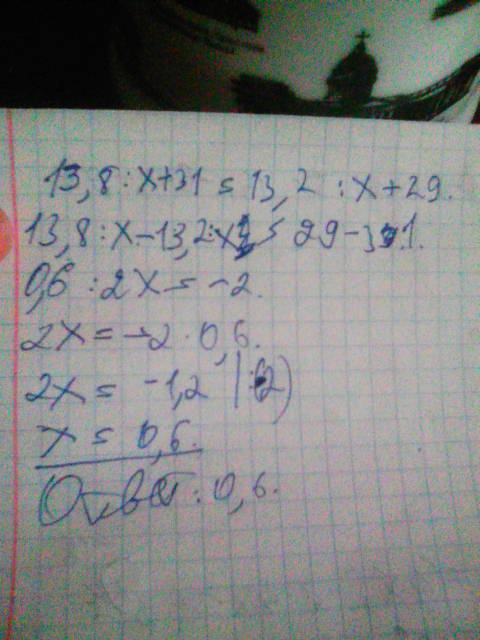 13,8 : x + 31 = 13,2 : x + 29.
13,8 : x - 13,2 : x = 29 - 31.
0,6 : 2x = -2.
2x = -2 · 0,6.
2x = -1,2 | : 2)
x = 0,6.
Ответ: 0,6.